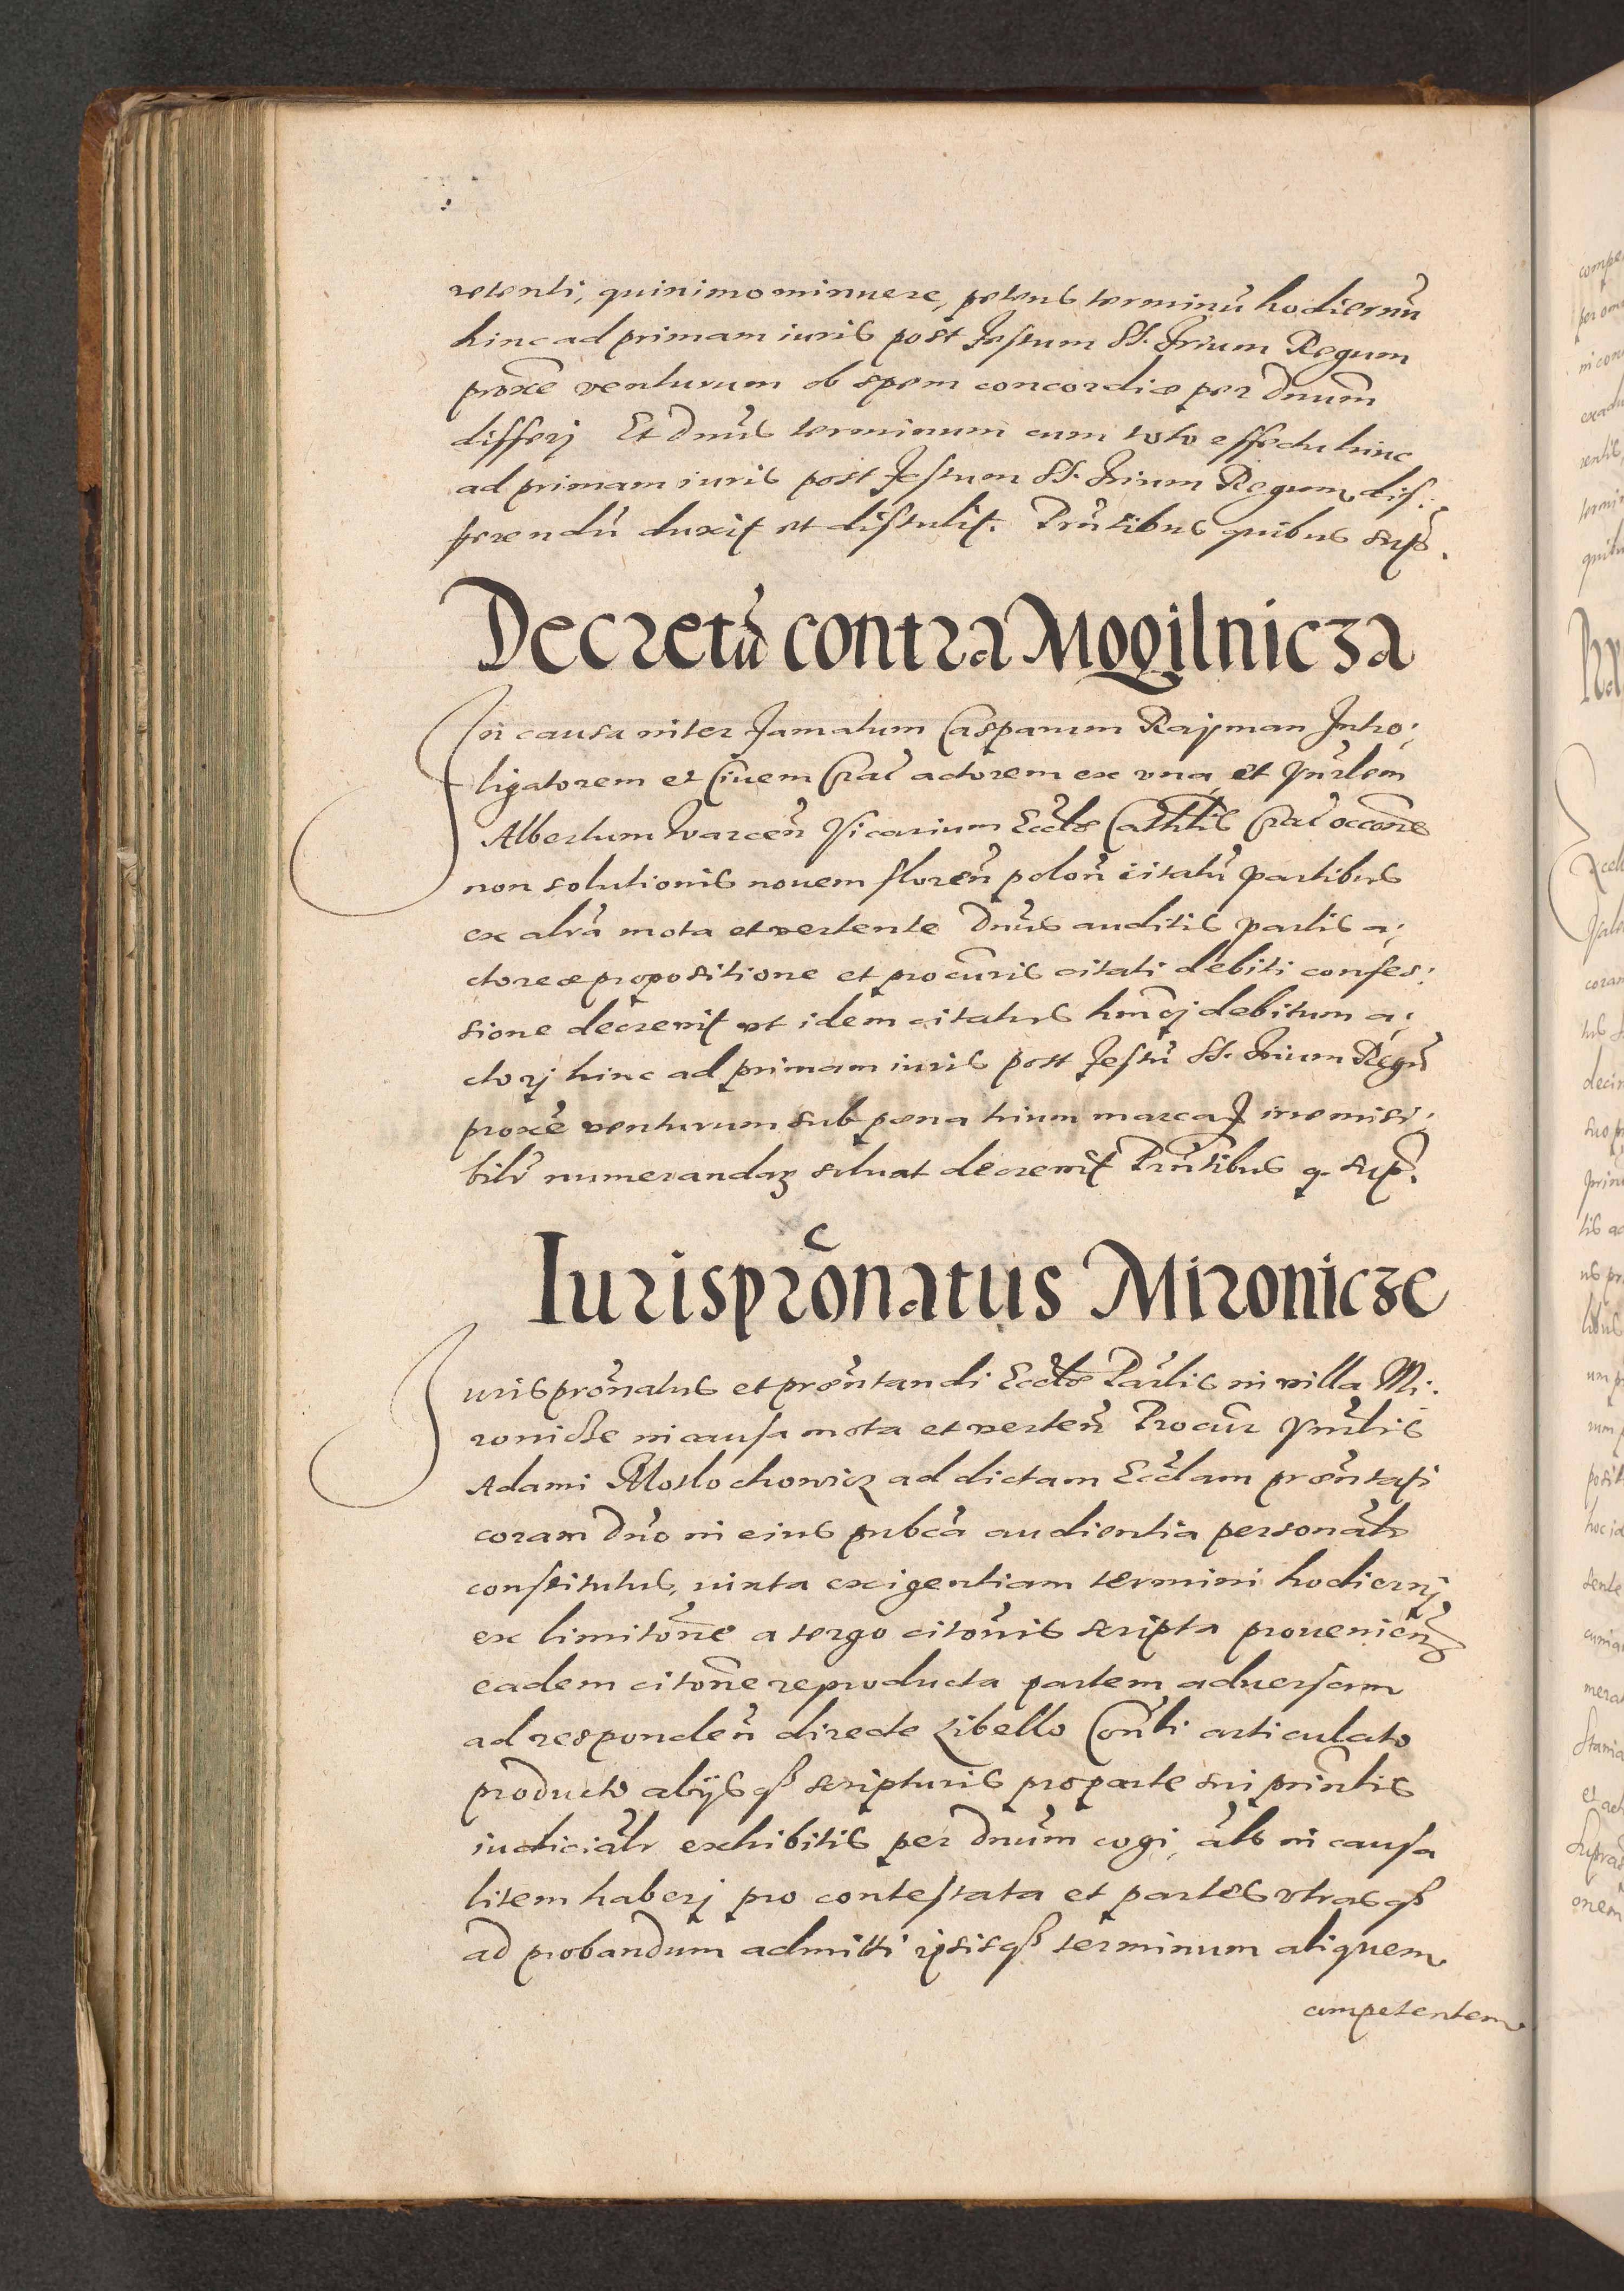 retenti, quinimo minuere, petens terminũ hodiernũ
hinc ad primam iuris post Festum SS. Trium Regum
proxẽ venturum ob spem concordiæ per Dnum̃
differj Et Dnũs terminum cum toto effectu hinc
ad primam iuris post Festum SS. Trium Regum dif:
ferendũ duxit et distulit. Pñtibus quibus sup̃.
Decretũ contra Mogilnicza
In causa inter Famatum Casparum Rajman Intro:
ligatorem et Ciuem Crac̃ actorem ex vna, et Vñrlem
Albertum Vicarium Eccl̃æ Cathl̃is Crac̃ occõne
non solutionis nouem floreñ poloñ citatũ partibus
ex altrã mota et vertente Dnũs auditis partis a:
ctoreæ propositione et procũris citati debiti confes:
sione decrevit vt idem citatus hm̃oj debitum a:
ctorj hinc ad primam iuris post Festũ SS. Trium Regũ
proxẽ venturum sub pœna trium marcaꝝ irremisi:
bilr̃ numerandaꝝ soluat decrevit Pñtibus q. sup̃.
Iurisprõnatus Mironicze
Iurisprõnatus et præñtandi Eccl̃æ Par̃lis in villa Mi:
ronicze in causa mota et verteñ Procũr Vñrlis
Adami ad dictam Eccl̃am præñtati
coram Dño in eius pubcã audientia personalr̃
constitutus, iuxta exigentiam termini hodiernj
ex limitõne a tergo citõnis scripta provenieñ
eadem citõne reproducta partem aduersam
ad respondeñ directe Libello Conṽli articulato
producto alijsqß scripturis pro parte sui princ̃lis
iudicialr̃ exhibitis per Dnũm cogi, als̃ in causa
litem haberj pro contestata et partes vtrasqß
ad probandum admitti ipsisqß terminum aliquem
competentem